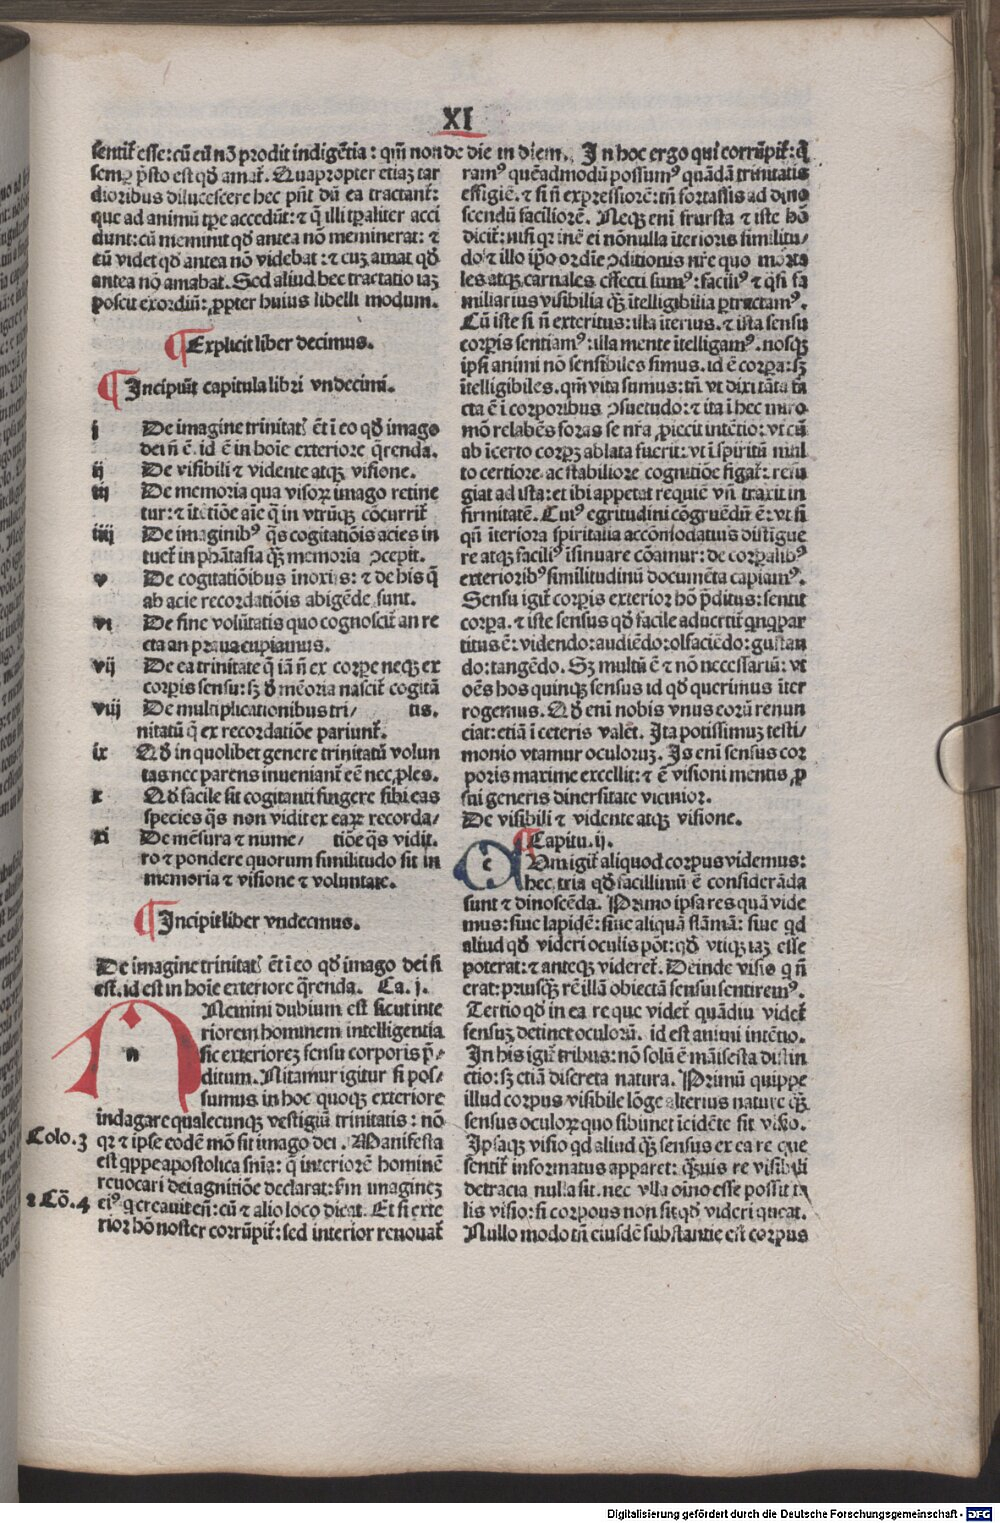 XI
sentit̃ esse: cũ eũ nõ prodit indigẽtia: qm̃ non
semꝑ p̃sto est qd̃ amat̃. Quapropter etiaꝫ tar
dioribus dilucescere hec pñt dũ ea tractant̃:
que ad animũ tp̃e accedũt: ⁊ q̃ illi tp̃aliter acci
dunt: cũ meminit qd̃ antea nõ meminerat: ⁊
cũ videt qd̃ antea nõ videbat: ⁊ cuꝫ amat qd̃
antea nõ amabat. Sed aliud hec tractatio iaꝫ
poscit exordiũ: ꝓpter huius libelli modum.
¶Explicit liber decimus.
¶Incipiũt capitula libri vndecimi.
i De imagine trinitatꝭ ẽt i eo qd̃ imago
dei ñ ẽ. id ẽ in hoĩe exteriore q̃renda.
ij De visibili ⁊ vidente atqꝫ visione.
iij De memoria qua visoꝝ imago retine
tur: ⁊ ĩtẽtiõe aĩe q̃ in vtrũqꝫ cõcurrit̃
iiij De imaginibꝰ q̃s cogitatiõis acies in
tuet̃ in phãtasia qꝫ̃ memoria ꝯcepit.
v De cogitatiõibus inoxijs: ⁊ de his q̃
ab acie recordatiõis abigẽde sunt.
vi De fine volũtatis quo cognoscit̃ an re
cta an praua cupiamus.
vij De ea trinitate q̃ iã ñ ex corꝑe neqꝫ ex
corꝑis sensu: sꝫ d̃ mẽoria nascit̃ cogitã
viij De multiplicationibus tri/ tis.
nitatũ q̃ ex recordatiõe pariunt̃.
ix Qd̃ in quolibet genere trinitatũ volun
tas nec parens inueniant̃ eẽ nec ꝓles.
x Qd̃ facile sit cogitanti fingere sibi eas
species q̃s non vidit ex eaꝝ recorda/
xi De mẽsura ⁊ nume/ tiõe q̃s vidit.
ro ⁊ pondere quorum similitudo sit in
memoria ⁊ visione ⁊ voluntate.
¶Incipit liber vndecimus.
De imagine trinitatꝭ ẽt i eo qd̃ imago dei ñ
est. id est in hoĩe exteriore q̃renda. Ca. j.
n
Nemini dubium est sicut inte
riorem hominem intelligentia
sic exterioreꝫ sensu corporis p̃/
ditum. Nitamur igitur si pos/
sumus in hoc quoqꝫ exteriore
indagare qualecunqꝫ vestigiũ trinitatis: nõ
Colo.3 qꝛ ⁊ ipse eodẽ mõ sit imago dei. Manifesta
est qppe apostolica snĩa: q̃ interiorẽ hominẽ
reuocari dei agnitiõe declarat: ẜm imagineꝫ
2 Cõ.4 eiꝰ q creauit eũ: cũ ⁊ alio loco dicat. Et si exte
rior hõ noster corrũpit̃: sed interior renouat̃
de die in diem. In hoc ergo qui corrũpit̃: q̃
ramꝰ quẽadmodũ possumꝰ quãdã trinitatis
effigiẽ. ⁊ si ñ expressiorẽ: tñ fortassis ad dino
scendũ faciliorẽ. Neqꝫ eni frustra ⁊ iste hõ
dicit̃: nisi qꝛ inẽ ei nõnulla ĩterioris similitu/
do ⁊ illo ip̃o ordĩe ꝯditionis nr̃e quo morta
les atqꝫ carnales effecti sumꝰ: faciliꝰ ⁊ q̃si fa
miliarius visibilia qꝫ̃ ĩtelligibilia ꝑtractamꝰ.
Cũ iste si ñ exteritus: illa ĩterius. ⁊ ista sensu
corꝑis sentiamꝰ: illa mente ĩtelligamꝰ. nosqꝫ
ipsi animi nõ sensibiles simus. id ẽ corꝑa: sꝫ
ĩtelligibiles. qm̃ vita sumus: tñ vt dixi tãta fã
cta ẽ i corporibus ꝯsuetudo: ⁊ ita i hec miro
mõ relabẽs foras se nr̃a ꝓiecit intẽtio: vt cũ
ab ĩcerto corꝑꝫ ablata fuerit: vt i spiritũ mul
to certiore ac stabiliore cognitiõe figat̃: refu
giat ad ista: et ibi appetat requiẽ vñ traxit in
firmitatẽ. Cuiꝰ egritudini cõgruẽdũ ẽ: vt si
qñ ĩteriora spiritalia accõmodatius distĩgue
re atqꝫ faciliꝰ ĩsinuare cõamur: de corꝑalibꝰ
exterioribꝰ similitudinũ documẽta capiamꝰ.
Sensu igit̃ corꝑis exterior hõ p̃ditus: sentit
corꝑa. ⁊ iste sensus qd̃ facile aduertit̃ qnqꝫpar
titus ẽ: videndo: audiẽdo: olfaciẽdo: gustan
do: tangẽdo. Sꝫ multũ ẽ ⁊ nõ necessariũ: vt
oẽs hos quinqꝫ sensus id qd̃ querimus ĩter
rogemus. Qd̃ eni nobis vnus eorũ renun
ciat: etiã i ceteris valẽt. Ita potissimuꝫ testi/
monio vtamur oculoruꝫ. Is eni sensus cor
poris maxime excellit: ⁊ ẽ visioni mentis ꝓ
sui generis diuersitate vicinior.
De visibili ⁊ vidente atqꝫ visione.
¶Capitu. ij.
c
Um igit̃ aliquod corpus videmus:
hec tria qd̃ facillimũ ẽ considerãda
sunt ⁊ dinoscẽda. Primo ipsa res quã vide
mus: siue lapidẽ: siue aliquã flãmã: siue qd
aliud qd̃ videri oculis põt: qd̃ vtiqꝫ iaꝫ esse
poterat: ⁊ anteqꝫ videret̃. Deinde visio q ñ
erat: priusqꝫ rẽ illã obiectã sensui sentiremꝰ.
Tertio qd̃ in ea re que videt̃ quãdiu videt̃
sensuꝫ detinet oculorũ. id est animi intẽtio.
In his igit̃ tribus: nõ solũ ẽ mãifesta distin
ctio: sꝫ etiã discreta natura. Primũ quippe
illud corpus visibile lõge alterius nature qꝫ̃
sensus oculoꝝ quo sibimet ĩcidẽte fit visio.
Ipsaqꝫ visio qd aliud qꝫ̃ sensus ex ea re que
sentit̃ informatus apparet: qꝫ̃uis re visibili
detracta nulla sit. nec vlla oĩno esse possit ta
lis visio: si corpus non sit qd̃ videri queat.
Nullo modo tñ eiusdẽ substantie est corpus
Digitalisierung gefördert durch die Deutsche Forschungsgemeinschaft - DFG